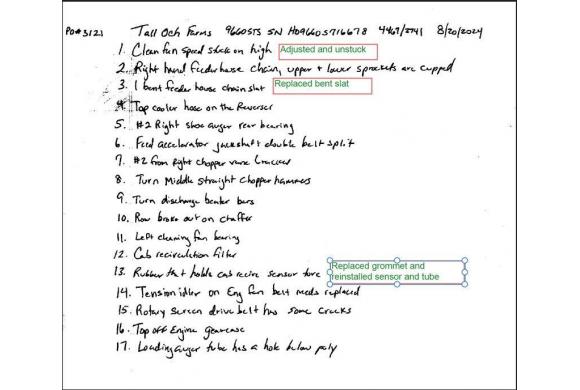 PO#3121 Tall Och Farms 9660STS SN H09660S716678 4467/2941 8/20/2024
1. Clean fan speed stuck on high Adjusted and unstuck
2. Right hand feederhouse chain, upper + lower sprockets are cupped
3. 1 bent feeder house chain slat Replaced bent slat
4. Top cooler hose on the Reverser
5. #2 Right shoe auger rear bearing
6. Feed accelerator jackshaft double belt split
7. #2 from right chopper vane cracked
8. Turn Middle straight chopper hammers
9. Turn discharge beater bars
10. Row broke out on chaffer
11. Left cleaning fan bearing
12. Cab recirculation filter
13. Rubber that holds cab recirc sensor tore Replaced grommet and
reinstalled sensor and tube
14. Tension idler on Eng fan belt needs replaced
15. Rotary screen drive belt has some cracks
16. Top off Engine gearcase
17. Loading auger tube has a hole below poly